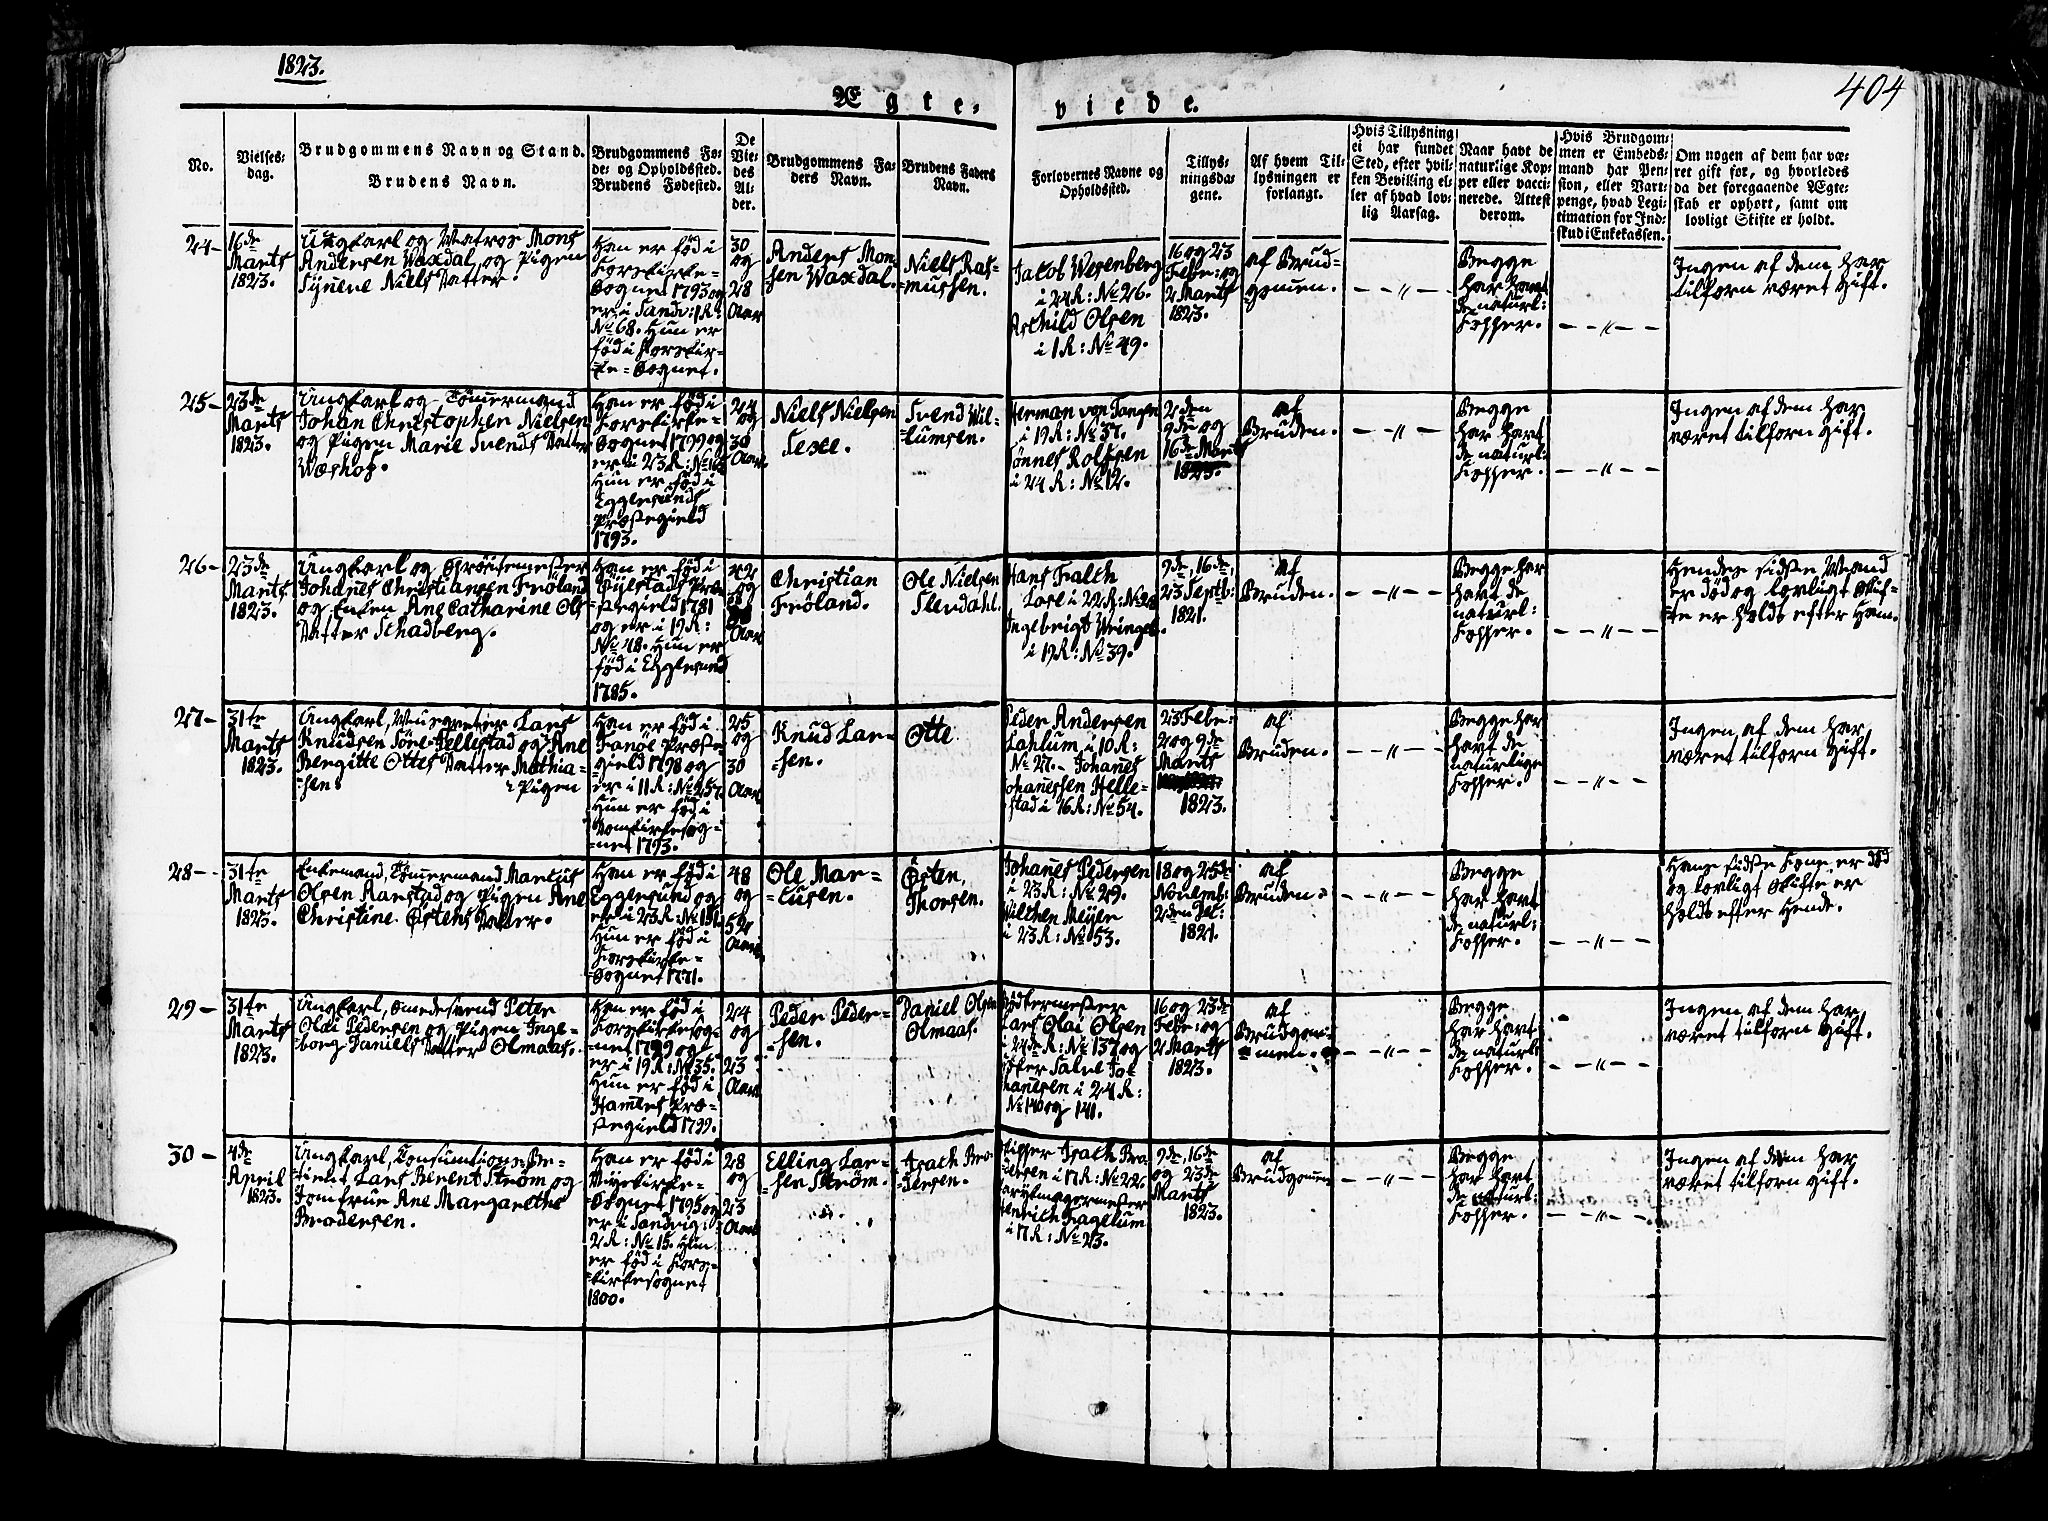 1823.
404
Ægte-viede.
No.
Vielses-
dag.
Brudgommens Navn og Stand.
Brudens Navn.
Brudgommens Fø-
de- og Opholdssted.
Brudens Fødested.
De
Vie-
des
Al-
der.
Brudgommens Fa-
ders Navn.
Brudens Faders
Navn.
Forlovernes Navne og
Opholdssted.
Tillys-
ningsda-
gene.
Af hvem Til-
lysningen er
forlangt.
Hvis Tillysning
ei har fundet
Sted, efter hvil-
ken Bevilling el-
ler af hvad lov-
lig Aarsag.
Naar havt de
naturlige Kop-
per eller vacci-
nerede. Attest
derom.
Hvis Brudgom-
men er Embeds-
mand har Pen-
sion, eller Vart-
penge, hvad Legi-
timation for Ind-
skud i Enkekassen.
Om nogen af dem har væ-
ret gift før, og hvorledes
da det foregaaende Ægte-
skab er ophørt, samt om
lovligt Skifte er holdt.
24-
16de
Marts
1823.
Ungkarl og Matros Mons
Andersen Waxdal og Pigen
Synene Niels Datter.
Han er fød i
Korskirke-
Sognet 1793 og
er i Sandv: 1 R:
No 68. Hun er
fød i Korskir-
ke-Sognet.
30
og
28
Aar
Anders Mon-
sen Waxdal.
Niels Ras-
mussen.
Jacob Wesenberg
i 24 R: No 26.
Askild Olsen
i 1 R: No 49.
16 og 23
Febr: og
2 Marts
1823.
af Brud-
gomen.
- - " - -
Begge
har havt
de naturl:
Kopper.
- - " - -
Ingen af dem har
tilforn været gift.
25-
23de
Marts
1823.
Ungkarl og Tømermand
Johan Christopher Nielsen
og Pigen Marie Svends Datter
Wæshog.
Han er fød i
Korskirke-
Sognet 1799 og
er i 23 R: No
Hun er fød i
Egglesunds
Præstegield
1793.
24
og
30
Aar.
Niels Nielsen
Svend Wil-
lumsen.
Herman von Tangen
i 19 R: No 37.
Tønnes Rolfsen
i 24 R: No 12.
2den
9de og
16de Marts
1823.
af
Bruden.
- - " - -
Begge
har havt
de naturl:
Kopper.
- - " - -
Ingen af dem har
været tilforn gift.
26-
23de
Marts
1823.
Ungkarl og
Johanes Christiansen Frøland
og Enken Ane Catharine Ols
Datter Schadberg.
Han er fød i
Præ-
stegield 1781
og er i 19 R:
No 48. Hun er
fød i Egglesund
1785.
42
og
Aar
Christian
Frøland.
Ole Nielsen
Slerdahl.
Hans Falch
Lose i 22 R: No 26
Ingebrigt
i 19 R: No 39.
9de, 16de,
23 Septb:
1821.
af
Bruden.
- - " - -
Begge har
havt de
naturl:
Kopper.
- - " - -
Hendes sidste Mand
er død og lovligt Skif-
te er holdt efter Ham.
27-
31te
Marts
1823.
Ungkarl, Muursvend Lars
Knudsen Søre-Hellestad og Ane
Bergitte Ottes Datter Mathia-
-sen. Pigen
Han er fød i
Fanøe Præste-
gield 1798 og
er i 11 R: No 257.
Hun er fød i
Domkirkesog-
net 1793.
25
og
30
Aar.
Knud Lar-
-sen.
Otte
Peder Andersen
Lahlum, i 10 R:
No 27. - Johanes
Johanessen Helle-
stad i 16 R: No 54.
23 Febr:
2 og 9de
Marts
1823.
af
Bruden.
- - " - -
Begge har
havt de
naturlige
Kopper.
- - " - -
Ingen af dem har
været tilforn gift.
28-
31te
Marts
1823.
Enkemand, Tømermand Marcus
Olsen Ranstad og Pigen Ane
Christine Østens Datter.
Han er fød i
Egglesund og
er i 23 R: No 151
Hun er fød i
Korskirke-
-Sognet 1771.
48
og
52
Aar
Ole Mar-
-cusen.
Østen
Thorsen.
Johanes Pedersen
i 23 R: No 29.
Wilchen Meyer
i 23 R: No 53.
18 og 25de
Novemb:
2den De:
1821.
af
Bruden.
- - " - -
Begge
har havt
de naturl:
Kopper.
- - " - -
Hans sidste Kone er død
og lovligt Skifte er
holdt efter Hende.
29-
31te
Marts
1823.
Ungkarl, Smedesvend Peter
Olai Pedersen og Pigen Inge-
-borg Daniels Datter Olmaas.
Han er fød i
Korskirkesog-
-net 1799 og
er i 19 R: No 35.
Hun er fød i
Hammers Præ-
stegield 1799.
24
og
23
Aar
Peder Peder-
-sen.
Daniel Olsen
Olmaas.
Lars Olai Olsen
i 24de R: No 137 og
Salve Jo-
hanesen i 24 R:
No 140 og 141.
16 og 23de
Febr: og
2 Marts
1823.
af
Brudgom-
-men.
- - " - -
Begge
har havt
de naturl:
Kopper.
- - " - -
Ingen af dem har
været tilforn gift.
30-
4de
April
1823.
Ungkarl, Consumtions-Be-
-tient Lars Berent Strøm og
Jomfrue Ane Margarethe
Brodersen.
Han er fød i
Nyekirke-
-Sognet 1795 og
er i Sandvig:
2 R: No 15. Hun
er fød i Kors-
kirkesognet
1800.
28
og
23
Aar
Elling Lar-
-sen Strøm.
Isach Bro-
dersen.
Skipper Isach Bro-
dersen i 17 R: No 226
Henrich Fagelum
i 17 R: No 23.
9de, 16de
og 23de
Marts
1823.
af
Brudgomen
- - " - -
Begge
har havt
de naturl:
Kopper.
- - " - -
Ingen af dem har
været tilforn gift.